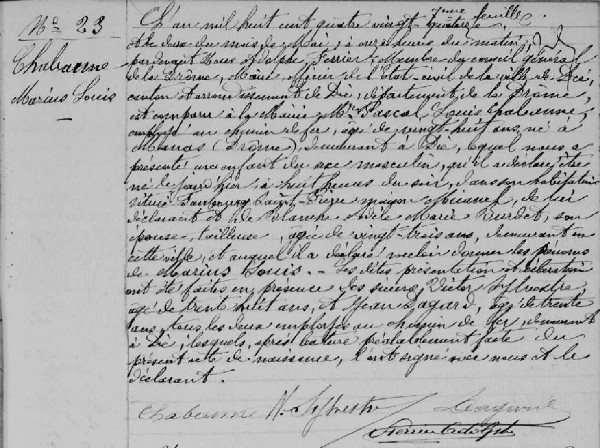 7eme feuillet
N° 23
Chabanne
Marius Louis
L'an mil huit cent quatre vingt quatorze
et le deux du mois de Mai, à onze heures du matin,
pardevant Nous Adolphe Ferrier, Membre du conseil général
de la Drôme, Maire, officier de l'Etat-civil de la ville de Die,
canton et arrondissement de Die, département de la Drôme,
est comparu à la Mairie Mr Pascal Louis Chabanne,
employé au chemin de fer, âgé de vingt huit ans, né à
Manas (Drôme), demeurant à Die, lequel nous a
présenté un enfant du sexe masculin, qu'il a déclaré être
né le jour d'hier à huit heures du soir, dans son habitation
située faubourg Saint-Pierre maison, de lui
déclarant et de Blanche Marie, son
épouse, tailleuse, âgée de vingt-trois ans, demeurant en
cette ville, et auquel il a déclaré vouloir donner les prénoms
de Marius Louis. Les dites présentation et déclaration
ont été faites en présence des sieurs, Victor Sylvestre,
âgé de trente huit ans, et Jean Layard, âgé de trente
ans, tous les deux employés au chemin de fer, demeurant
à Die, lesquels, après lecture préalablement faite du
présent acte de naissance, l'ont signé avec nous et le
déclarant.
Chabanne V. Sylvestre